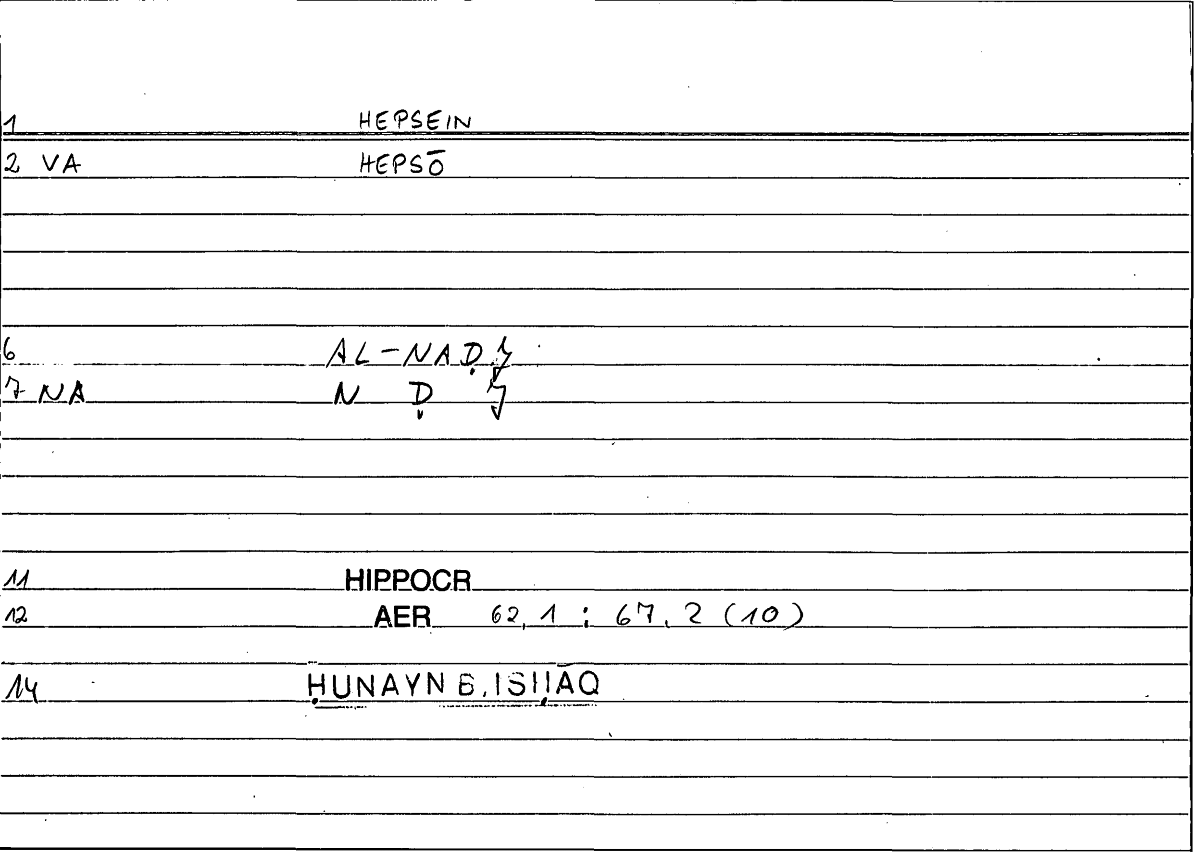 1 HEPSEIN
2 VA HEPSŌ
6 AL-NAḌJ
7 NA N Ḍ J
11 HIPPOCR
12 AER 62,1 ; 67,2 (10)
14 ḤUNAYN B. ISḤĀQ